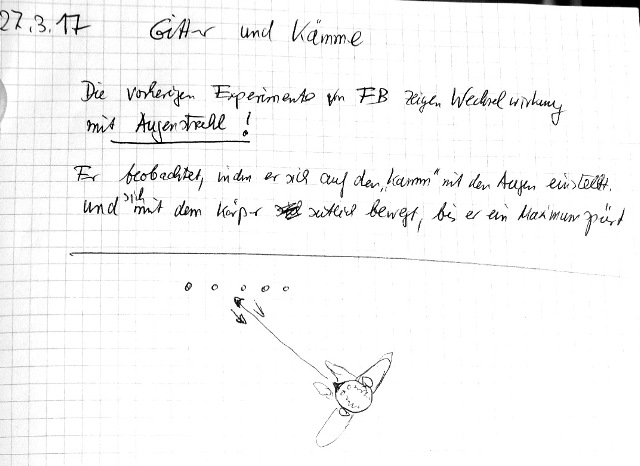 27.3.17 Gitter und Kämme
Die vorherigen Experimente von FB zeigen Wechselwirkung
mit Augenstrahl!
Er beobachtet, indem er sich auf den „Kamm" mit den Augen einstellt.
und sich mit dem Körper seitlich bewegt, bis er ein Maximum spürt